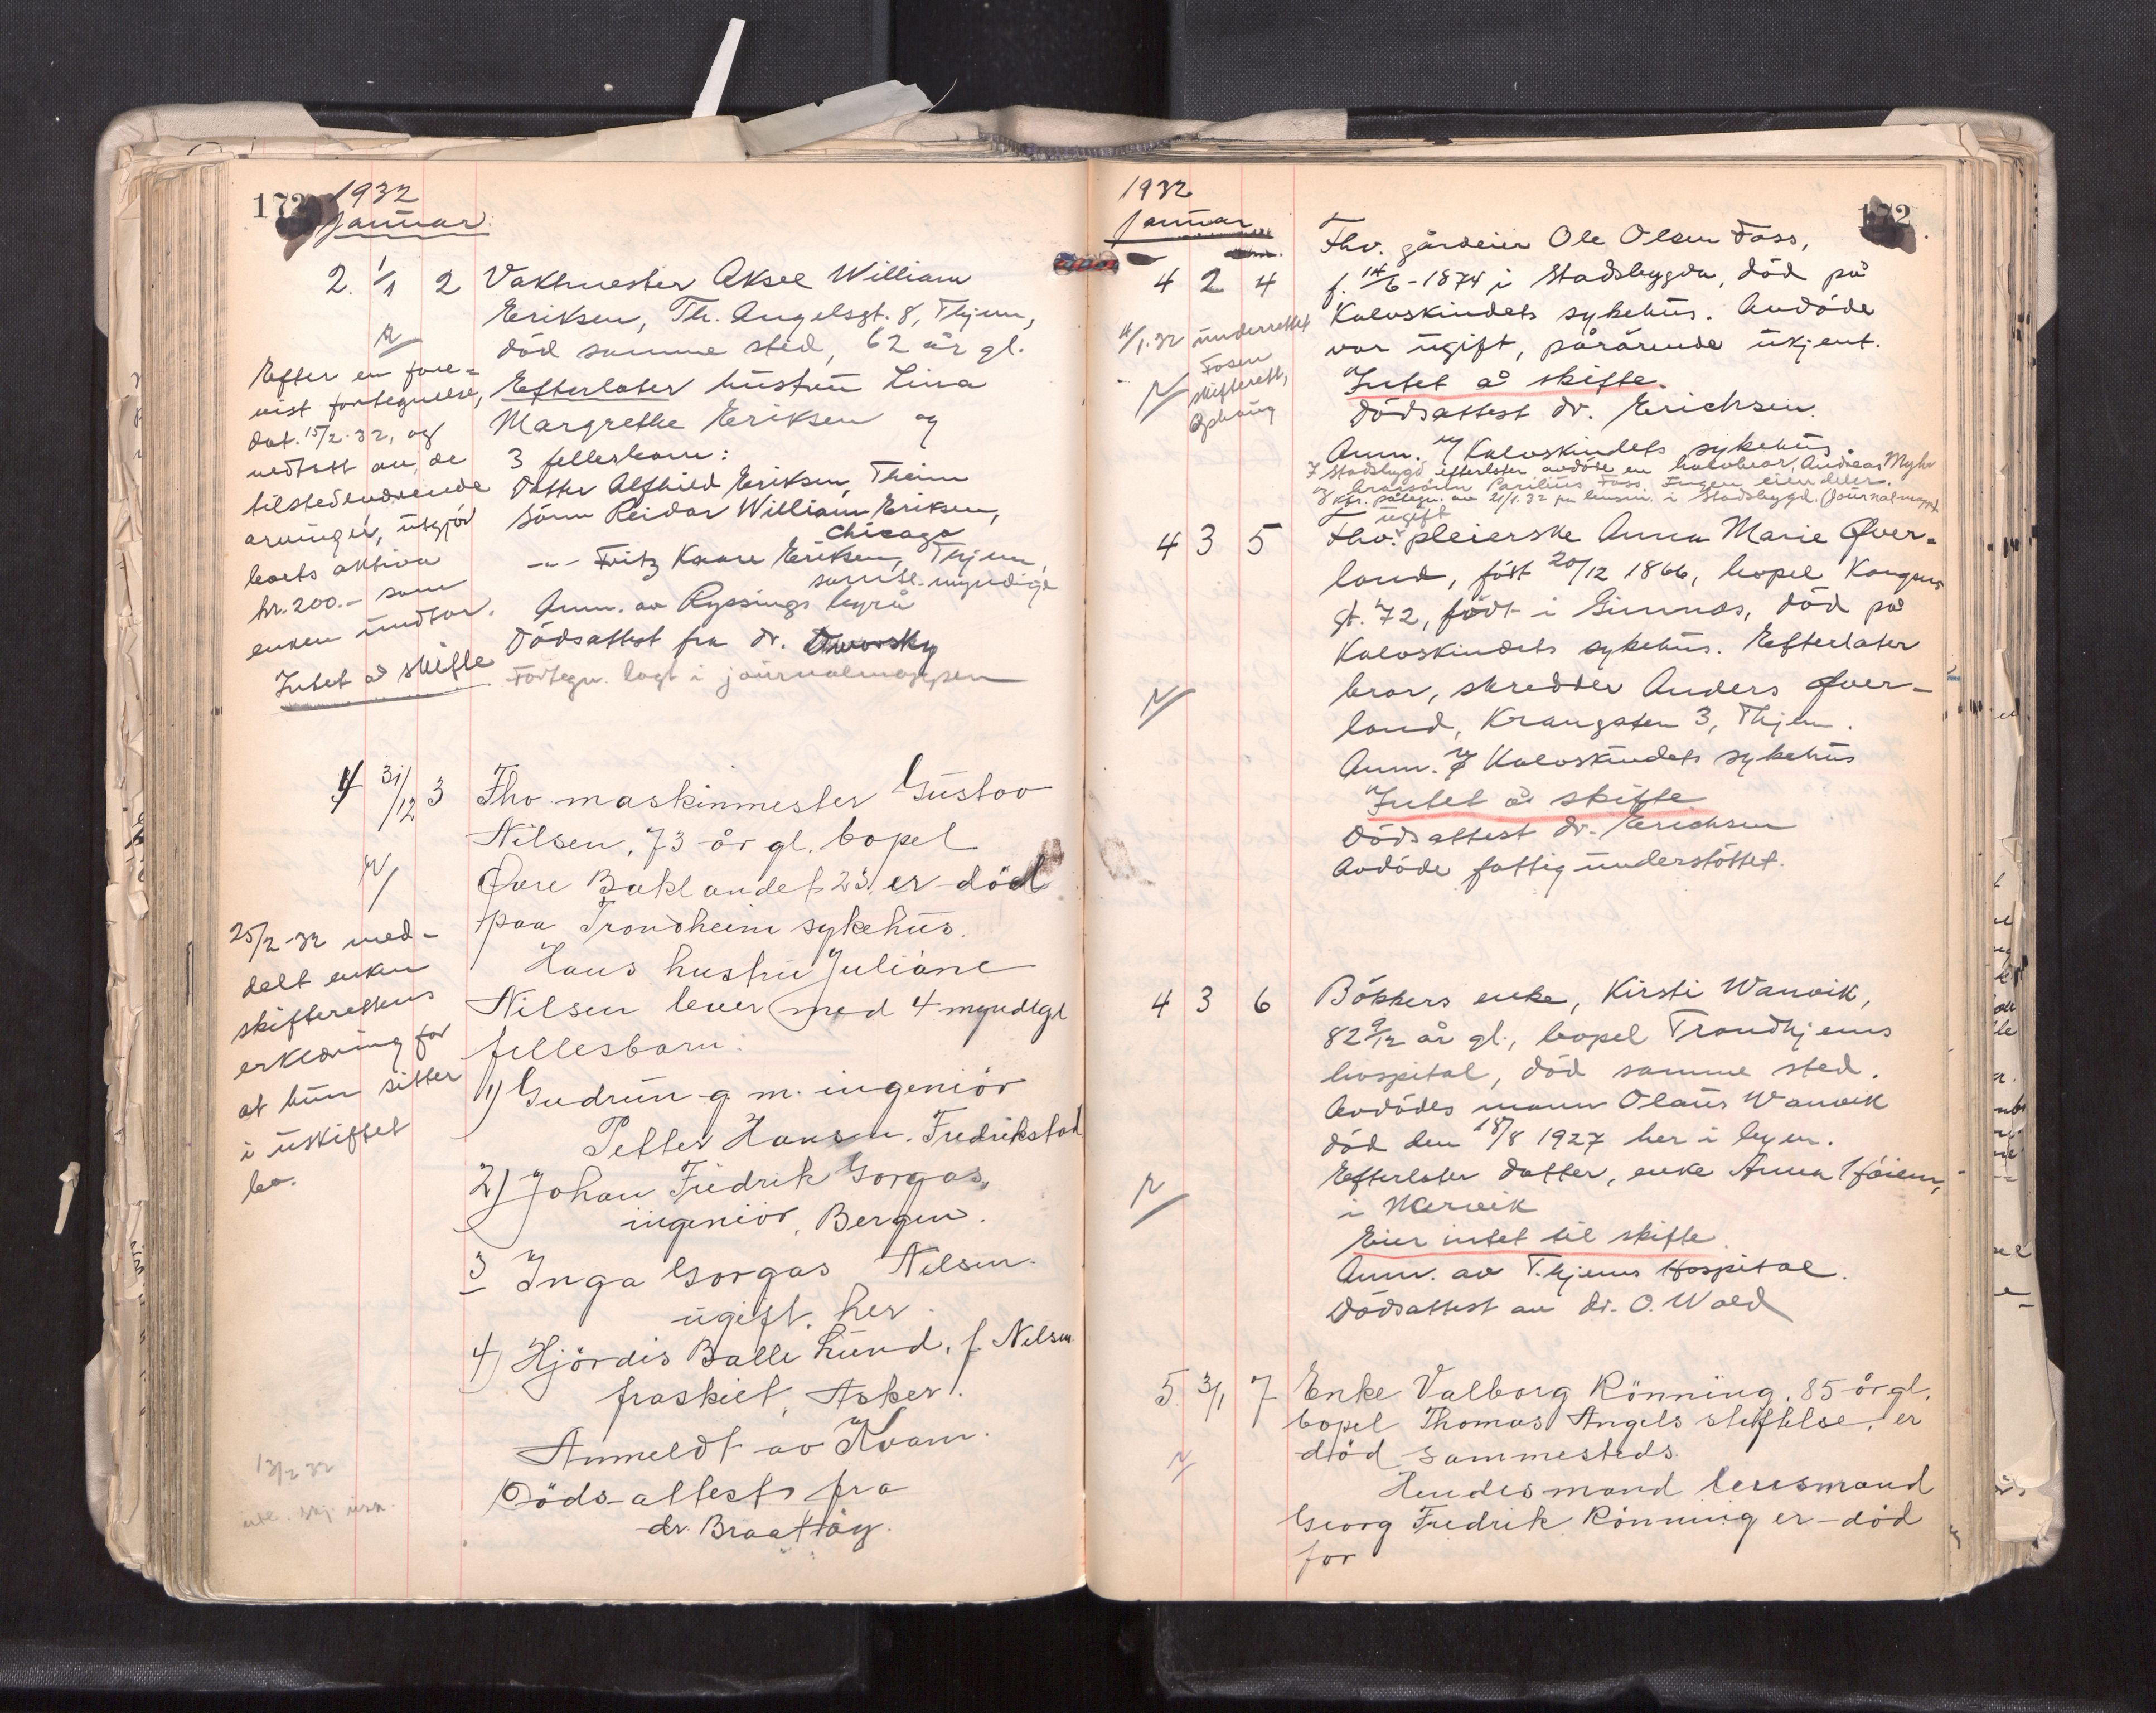 172
1932
Januar.
2. 1/1 2 Vaktmester Aksel William
Eriksen, Th. Angelsgt. 8, Thjem,
død samme sted, 62 år gl.
Efterlater hustru Lina
Margrethe Eriksen og
3 fellesbarn:
Datter Alfhild Eriksen, Theim
Sønn Reidar William Eriksen,
Chicago
-"- Fritz Kaare Eriksen, Thjem,
samtl. myndige
Anm. av Ryssings byrå
Dødsattest fra dr. Dworsky
Fortegn. lagt i journalmappen
Efter en fore-
vist fortegnelse,
dat. 15/2-32, og
vedtatt av de
tilstedeværende
arvinger, utgjør
boets aktiva
kr. 200.- som
enken undtar.
Intet å skifte
4 31/12 3 Fhv maskinmester Gustav
Nilsen, 73 år gl. bopel
Øvre Baklandet 23. er død
paa Trondheim sykehus.
Hans hustru Juliane
Nilsen lever med 4 myndige
fellesbarn:
1) Gudrun g. m. ingeniør
Petter Hansen. Fredrikstad
2) Johan Fredrik Gorgas,
ingeniør, Bergen.
3 Inga Gorgas Nilsen.
ugift. her.
4) Hjørdis Balle Lund, f. Nilsen
fraskilt, Asker.
Anmeldt av Kvam.
Døds-attest fra
dr. Braathøy.
25/2-32 med-
delt enken
skifterettens
erklæring for
at hun sitter
i uskiftet
bo.
13/2 32
1932
Januar
4 2 4 Fhv. gårdeier Ole Olsen Foss,
f. 14/6-1874 i Stadsbygda, død på
Kalvskindets sykehus. Avdøde
var ugift, pårørende ukjent.
Intet å skifte.
Dødsattest dr. Erichsen.
Anm. Kalvskindets sykehus.
I Stadsbygd efterlater avdøde en halvbror, Andreas Myhr
og brorsønn Parilius Foss. Ingen eiendeler.
Kfr. påtegn. av 21/1.32 fra lensm. i Stadsbygd. (Journalmapp)
4/1.32 underrettet
Fosen
skifterett,
4 3 5 Fhv. ugift pleierske Anna Marie Øver-
land, født 20/12 1866, bopel Kongens
gt. 72, født i Gimnes, død på
Kalvskindets sykehus. Efterlater
bror, skredder Anders Øver-
land, Krangata 3, Thjem.
Anm. Kalvskindets sykehus
Intet å skifte
Dødsattest dr. Erichsen
Avdøde fattigunderstøttet.
4 3 6 Bøkkers enke, Kirsti Wanvik,
82 9/12 år gl., bopel Trondhjems
hospital, død samme sted.
Avdødes mann Olaus Wanvik
død den 18/8 1927 her i byen.
Efterlater datter, enke Anna
i Narvik
Eier intet til skifte.
Anm. av T.hjems Hospital.
Dødsattest av dr. O. Wold
5. 3/1 7 Enke Valborg Rønning, 85 år gl.
bopel Thomas Angels stiftelse, er
død sammesteds.
Hendes mand lensmand
Georg Fredrik Rønning er død
før